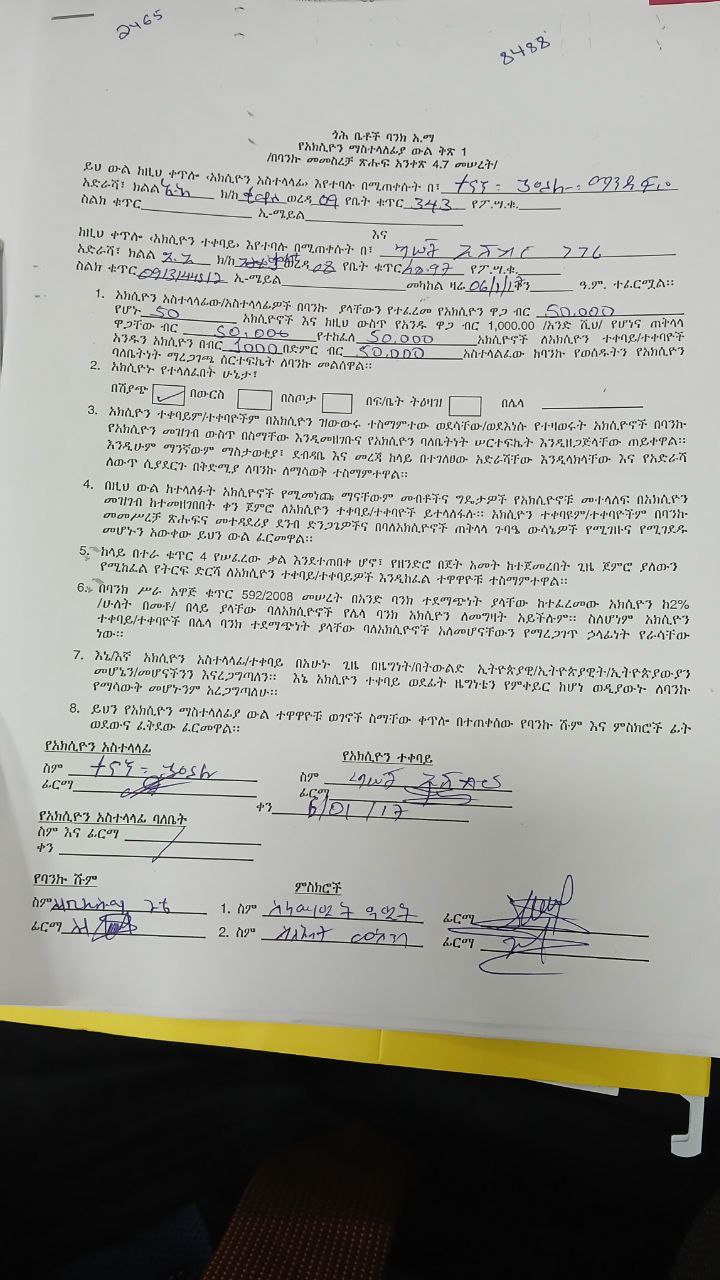 2465
8488
ጎሕ ቤቶች ባንክ አ.ማ
የአክሲዮን ማስተላለፊያ ውል ቅጽ 1
/በባንኩ መመስረቻ ጽሑፍ አንቀጽ 4.7 መሠረት/
ይህ ውል ከዚህ ቀጥሎ ‹አክሲዮን አስተላላፊ› እየተባሉ በሚጠቀሱት በ፤
አድራሻ፤ ክልል አ.አ ክ/ከ ወረዳ 09 የቤት ቁጥር 343 የፖ.ሣ.ቁ.
ስልክ ቁጥር ኢ-ሜይል
እና
ከዚህ ቀጥሎ ‹አክሲዮን ተቀባይ› እየተባሉ በሚጠቀሱት በ፤
አድራሻ፤ ክልል አ.አ ክ/ከ ወረዳ 08 የቤት ቁጥር የፖ.ሣ.ቁ.
ስልክ ቁጥር 0913144512 ኢ-ሜይል መካከል ዛሬ 06/1/17 ቀን ዓ.ም. ተፈርሟል፡፡
1. አክሲዮን አስተላላፊው/አስተላላፊዎች በባንኩ ያላቸውን የተፈረመ የአክሲዮን ዋጋ ብር 50,000
የሆኑ 50 አክሲዮኖች እና ከዚህ ውስጥ የአንዱ ዋጋ ብር 1,000.00 /አንድ ሺህ/ የሆነና ጠቅላላ
ዋጋቸው ብር 50,000 የተከፈለ 50,000 አክሲዮኖች ለአክሲዮን ተቀባይ/ተቀባዮች
አንዱን አክሲዮን በብር 1000 በድምር ብር 50,000 አስተላልፈው ከባንኩ የወሰዱትን የአክሲዮን
ባለቤትነት ማረጋገጫ ሰርተፍኬት ለባንኩ መልሰዋል፡፡
2. አክሲዮኑ የተላለፈበት ሁኔታ፤
በሽያጭ ✓ በውርስ በስጦታ በፍ/ቤት ትዕዛዝ በሌላ
3. አክሲዮን ተቀባይም/ተቀባዮችም በአክሲዮን ዝውውሩ ተስማምተው ወደሳቸው/ወደእነሱ የተዛወሩት አክሲዮኖች በባንኩ
የአክሲዮን መዝገብ ውስጥ በስማቸው እንዲመዘገቡና የአክሲዮን ባለቤትነት ሠርተፍኬት እንዲዘጋጅላቸው ጠይቀዋል፡፡
እንዲሁም ማንኛውም ማስታወቂያ፣ ደብዳቤ እና መረጃ ከላይ በተገለፀው አድራሻቸው እንዲላክላቸው እና የአድራሻ
ለውጥ ሲያደርጉ በቅድሚያ ለባንኩ ለማሳወቅ ተስማምተዋል፡፡
4. በዚህ ውል ከተላለፉት አክሲዮኖች የሚመነጩ ማናቸውም መብቶችና ግዴታዎች የአክሲዮኖቹ መተላለፍ በአክሲዮን
መዝገብ ከተመዘገበበት ቀን ጀምሮ ለአክሲዮን ተቀባይ/ተቀባዮች ይተላለፋሉ፡፡ አክሲዮን ተቀባዩም/ተቀባዮችም በባንኩ
መመሥረቻ ጽሑፍና መተዳደሪያ ደንብ ድንጋጌዎችና በባለአክሲዮኖች ጠቅላላ ጉባዔ ውሳኔዎች የሚገዙና የሚገደዱ
መሆኑን አውቀው ይህን ውል ፈርመዋል፡፡
5. ከላይ በተራ ቁጥር 4 የሠፈረው ቃል እንደተጠበቀ ሆኖ፣ የዘንድሮ በጀት አመት ከተጀመረበት ጊዜ ጀምሮ ያለውን
የሚከፈል የትርፍ ድርሻ ለአክሲዮን ተቀባይ/ተቀባይዎች እንዲከፈል ተዋዋዮቹ ተስማምተዋል፡፡
6. በባንክ ሥራ አዋጅ ቁጥር 592/2008 መሠረት በአንድ ባንክ ተደማጭነት ያላቸው ከተፈረመው አክሲዮን ከ2%
/ሁለት በመቶ/ በላይ ያላቸው ባለአክሲዮኖች የሌላ ባንክ አክሲዮን ለመግዛት አይችሉም፡፡ ስለሆነም አክሲዮን
ተቀባይ/ተቀባዮች በሌላ ባንክ ተደማጭነት ያላቸው ባለአክሲዮኖች አለመሆናቸውን የማረጋገጥ ኃላፊነት የራሳቸው
ነው፡፡
7. እኔ/እኛ አክሲዮን አስተላላፊ/ተቀባይ በአሁኑ ጊዜ በዜግነት/በትውልድ ኢትዮጵያዊ/ኢትዮጵያዊት/ኢትዮጵያውያን
መሆኔን/መሆናችንን እናረጋግጣለን፡፡ እኔ አክሲዮን ተቀባይ ወደፊት ዜግነቴን የምቀይር ከሆነ ወዲያውኑ ለባንኩ
የማሳውቅ መሆኑንም አረጋግጣለሁ፡፡
8. ይህን የአክሲዮን ማስተላለፊያ ውል ተዋዋዮቹ ወገኖች ስማቸው ቀጥሎ በተጠቀሰው የባንኩ ሹም እና ምስክሮች ፊት
ወደውና ፈቅደው ፈርመዋል፡፡
የአክሲዮን አስተላላፊ
የአክሲዮን ተቀባይ
ስም
ስም
ፊርማ
ፊርማ
ቀን 6/01/17
የአክሲዮን አስተላላፊ ባለቤት
ስም እና ፊርማ
ቀን
የባንኩ ሹም
ምስክሮች
ስም
1. ስም ፊርማ
ፊርማ
2. ስም ፊርማ